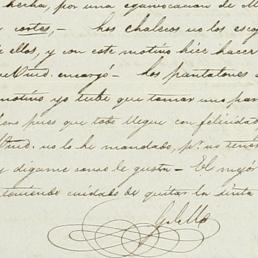 hecha, por una equivocacion de M
y cortes,- los chalecos no los esco
ellos, y con este motivo hice hacer
Vmd. encargó.- los pantalones
motivo yo tube que tomar una par
pues que todo llegue con felicidad
Vmd. no lo he mandado, pr. no tener
y digame sonas de gusto - El mejor
teniendo cuidado de quitar la tinta